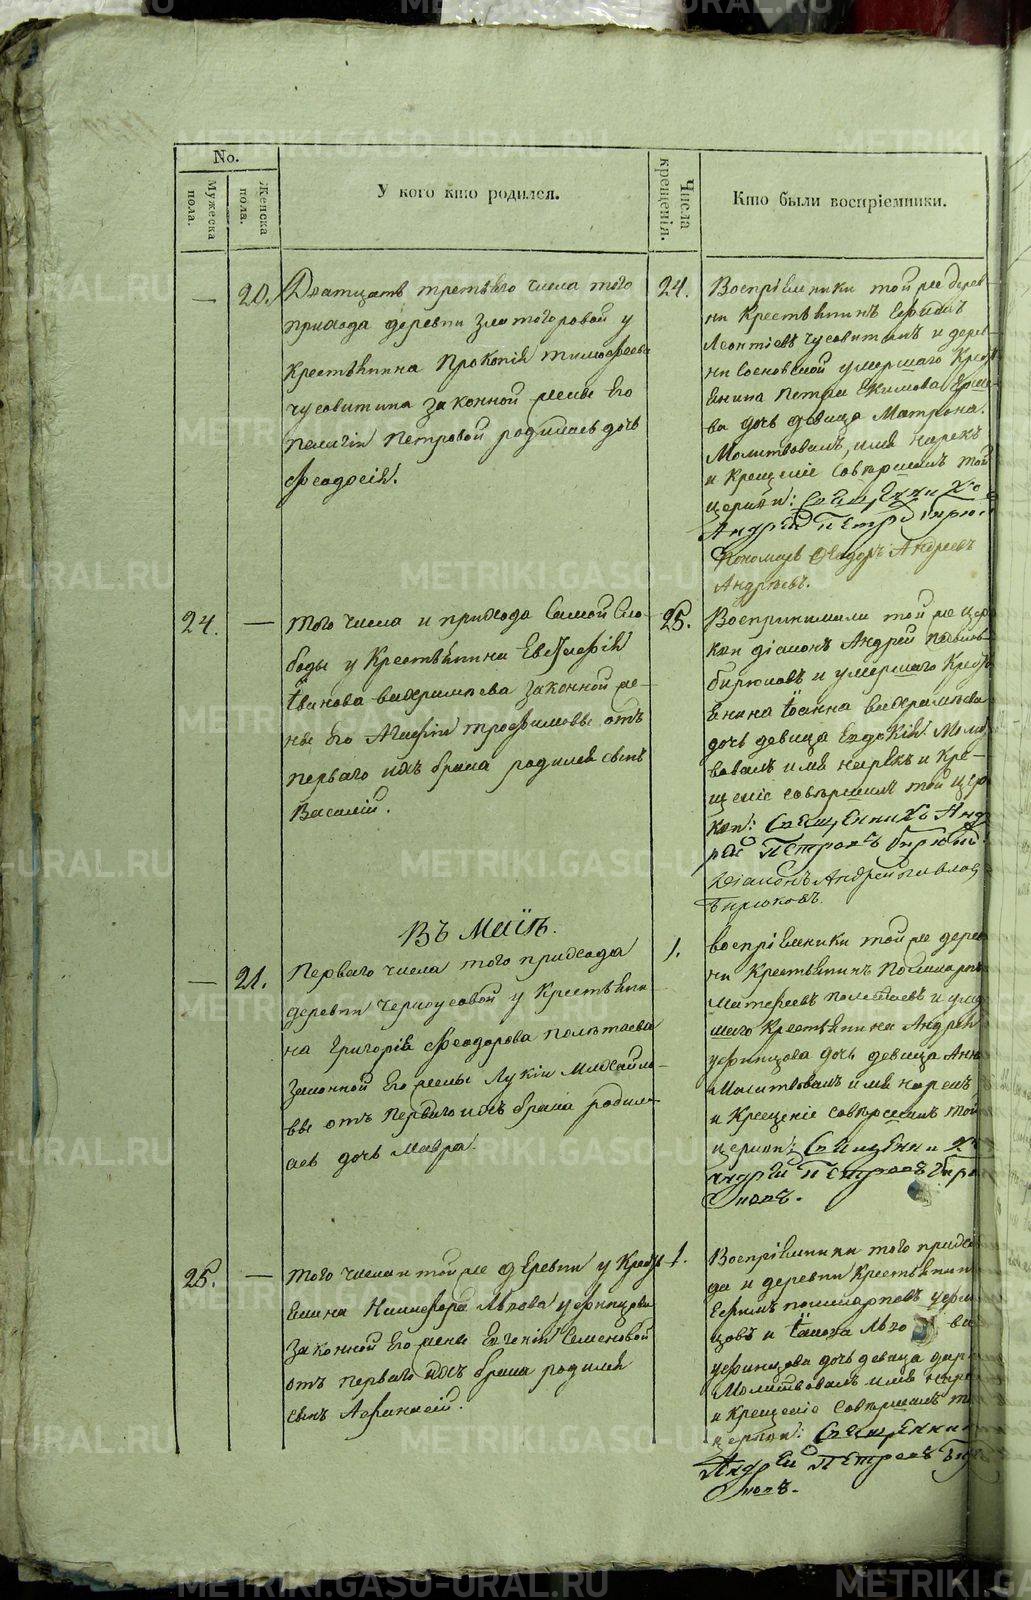 No.
Мужеска пола.
Женска пола.
У кого кто родился.
Числа крещенія.
Кто были воспріемники.
— 20. Дватцать третьяго числа того
прихода деревни Златогоровой у
крестьянина Прокопія Тимофеева
Чусовитина законной жены его
Пелагіи Петровой родилась дочь
Феодосія.
24.
Воспріемники той же дерев
ни крестьянинъ Ефимъ
Леонтіевъ Чусовитинъ и дерев
ни Сосновской умершаго крест
янина Петра Екимова
ва дочь девица Матрона.
Молитвовалъ, имя нарекъ
и крещеніе совершилъ той
церкви: Священникъ
Андрей Петровъ Бирю
Пономарь Феодоръ Андреевъ
24. — того числа и прихода самой Сло-
боды у крестьянина Евстафія
Іванова Вахрамеева законной же-
ны его Агафіи Трофимовы отъ
перваго ихъ брака родился сынъ
Василій.
25.
Воспринимали той же цер
кви діаконъ Андрей Павловъ
Бирюковъ и умершаго крест
янина Іоанна Вахрамеева
дочь девица Евдокія. Молит
вовалъ имя нарекъ и кре-
щеніе совершилъ той цер
кви: Священникъ Анд
рей Петровъ Бирюк
Діаконъ Андрей Павлов
Бирюковъ.
Въ Маіѣ.
— 21. Перваго числа того прихода
деревни Черноусовой у крестьяни
на Григорія Феодорова Полѣтаева
законной его жены Лукіи Михайло-
вы отъ перваго ихъ брака родила-
ась дочь Мавра.
1.
Воспріемники той же дерев
ни крестьянинъ
Матфеевъ Полетаевъ и умер
шаго крестьянина Андрея
Уфинцова дочь девица Анна
Молитвовалъ имя нарекъ
и крещеніе совершилъ той
церкви: Священникъ
Андрей Петровъ Бирю
ковъ.
25. — того числа и той же деревни у крест
янина Никифора Львова Уфинцова
законной его жены Евгеніи Семеновой
отъ перваго ихъ брака родился
сынъ Афанасій.
1.
Воспріемники того прихо
да и деревни крестьянин
Ефимъ Уфин
цовъ и
Уфинцова дочь девица Дар
Молитвовалъ имя наре
и крещеніе совершилъ т
церкви: Священни
Андрей Петровъ Бирю
ковъ.
METRIKI.GASO-URAL.RU